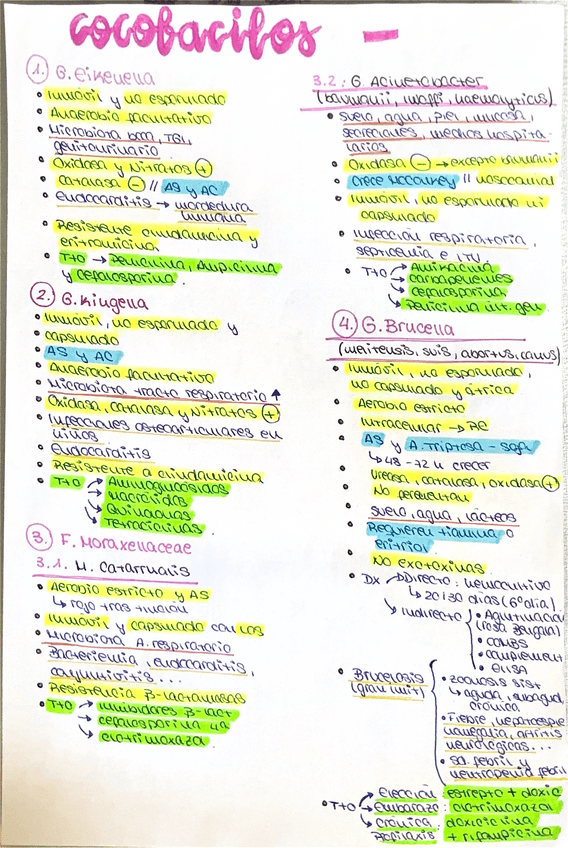 cocobacilos -
1. G. Eikenella
• Inmóvil y no esporulado
• Anaerobio facultativo
• Microbiota boca, TGI,
genitourinario
• Oxidasa y Nitratos +
• Catalasa - // AS y AC
• Endocarditis → mordedura
humana
• Resistente clindamicina y
eritromicina
• T+O → Penicilina, Ampicilina
y cefalosporina
2. G. Kingella
• Inmóvil, no esporulado y
• capsulado
• AS y AC
• Anaerobio facultativo
• Microbiota tracto respiratorio ↑
• Oxidasa, catalasa y Nitratos +
• Infecciones osteoarticulares en
niños
• Endocarditis
• Resistente a clindamicina
• T+O → Aminoglucósidos
→ Macrólidos
→ Quinolonas
→ Tetraciclinas
3. F. Moraxellaceae
3.1. M. Catarrhalis
• Aerobio estricto y AS
↳ rojo tras tinción
• Inmóvil y capsulado con LOS
• Microbiota A. respiratorio
• Bacteriemia, endocarditis,
conjuntivitis ...
• Resistencia β-lactamasas
• T+O → inhibidores β-lact
→ cefalosporina 4ª
→ clotrimoxazol
3.2: G Acinetobacter
(baumanii, lwoffi, haemolyticus)
• Suelo, agua, piel, mucosa,
secreciones, medios hospita-
larios
• Oxidasa - → excepto baumanii
• Crece McConkey // nosocomial
• Inmóvil, no esporulado ni
capsulado
• Infección respiratoria,
septicemia e ITU
• T+O → Amikacina
→ carbapenemes
→ cefalosporina
→ Penicilina int. gen
4. G. Brucella
(melitensis, suis, abortus, canis)
• Inmóvil, no esporulado,
no capsulado y átrica
• Aerobio estricto
• Intracelular → RE
• AS y A. Triptosa - soja
↳ 48 - 72 h crecer
• Ureasa, catalasa, oxidasa +
• No fermentan
• Suelo, agua, lácteos
• Requieren tiamina o
eritriol
• No exotoxinas
• DX → Directo: hemocultivo
↳ 20 i 30 días (6º día)
↳ Indirecto • Aglutinación
(rosa Bengala)
• COMBS
• complement
• ELISA
• Brucelosis
• zoonosis sist
↳ aguda, subaguda,
crónica
• Fiebre, hepatoesple
nomegalia, artritis
neurológicas...
• Sd. febril y
neutropenia febril
• T+O → Elección: estrepto + doxic
→ Embarazo: clotrimoxazol
→ Crónica: doxiciclina
Profilaxis + rifampicina